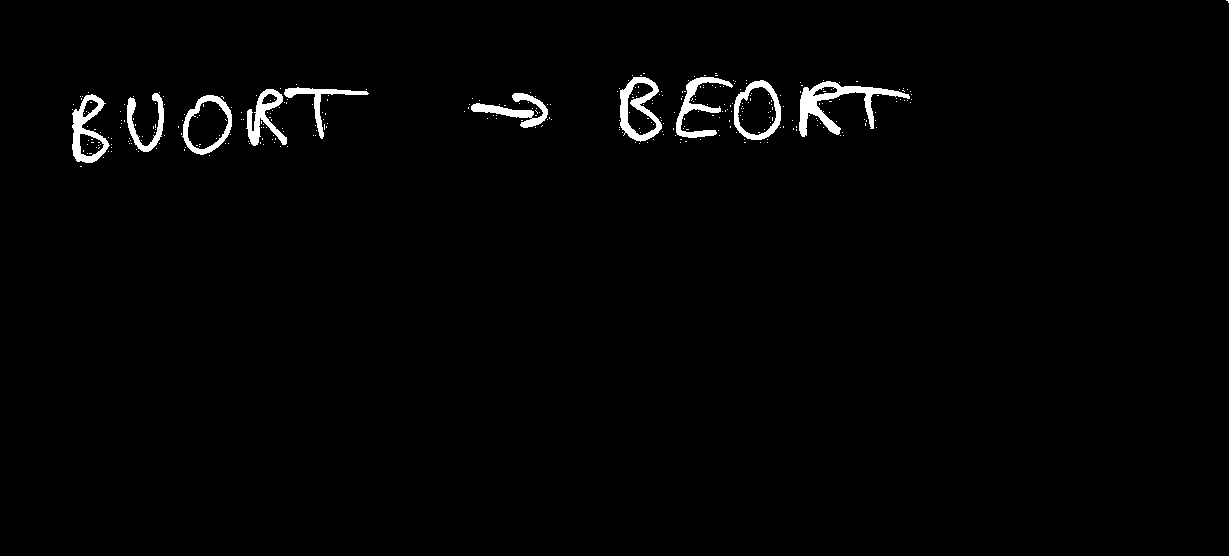 BUORT → BEORT